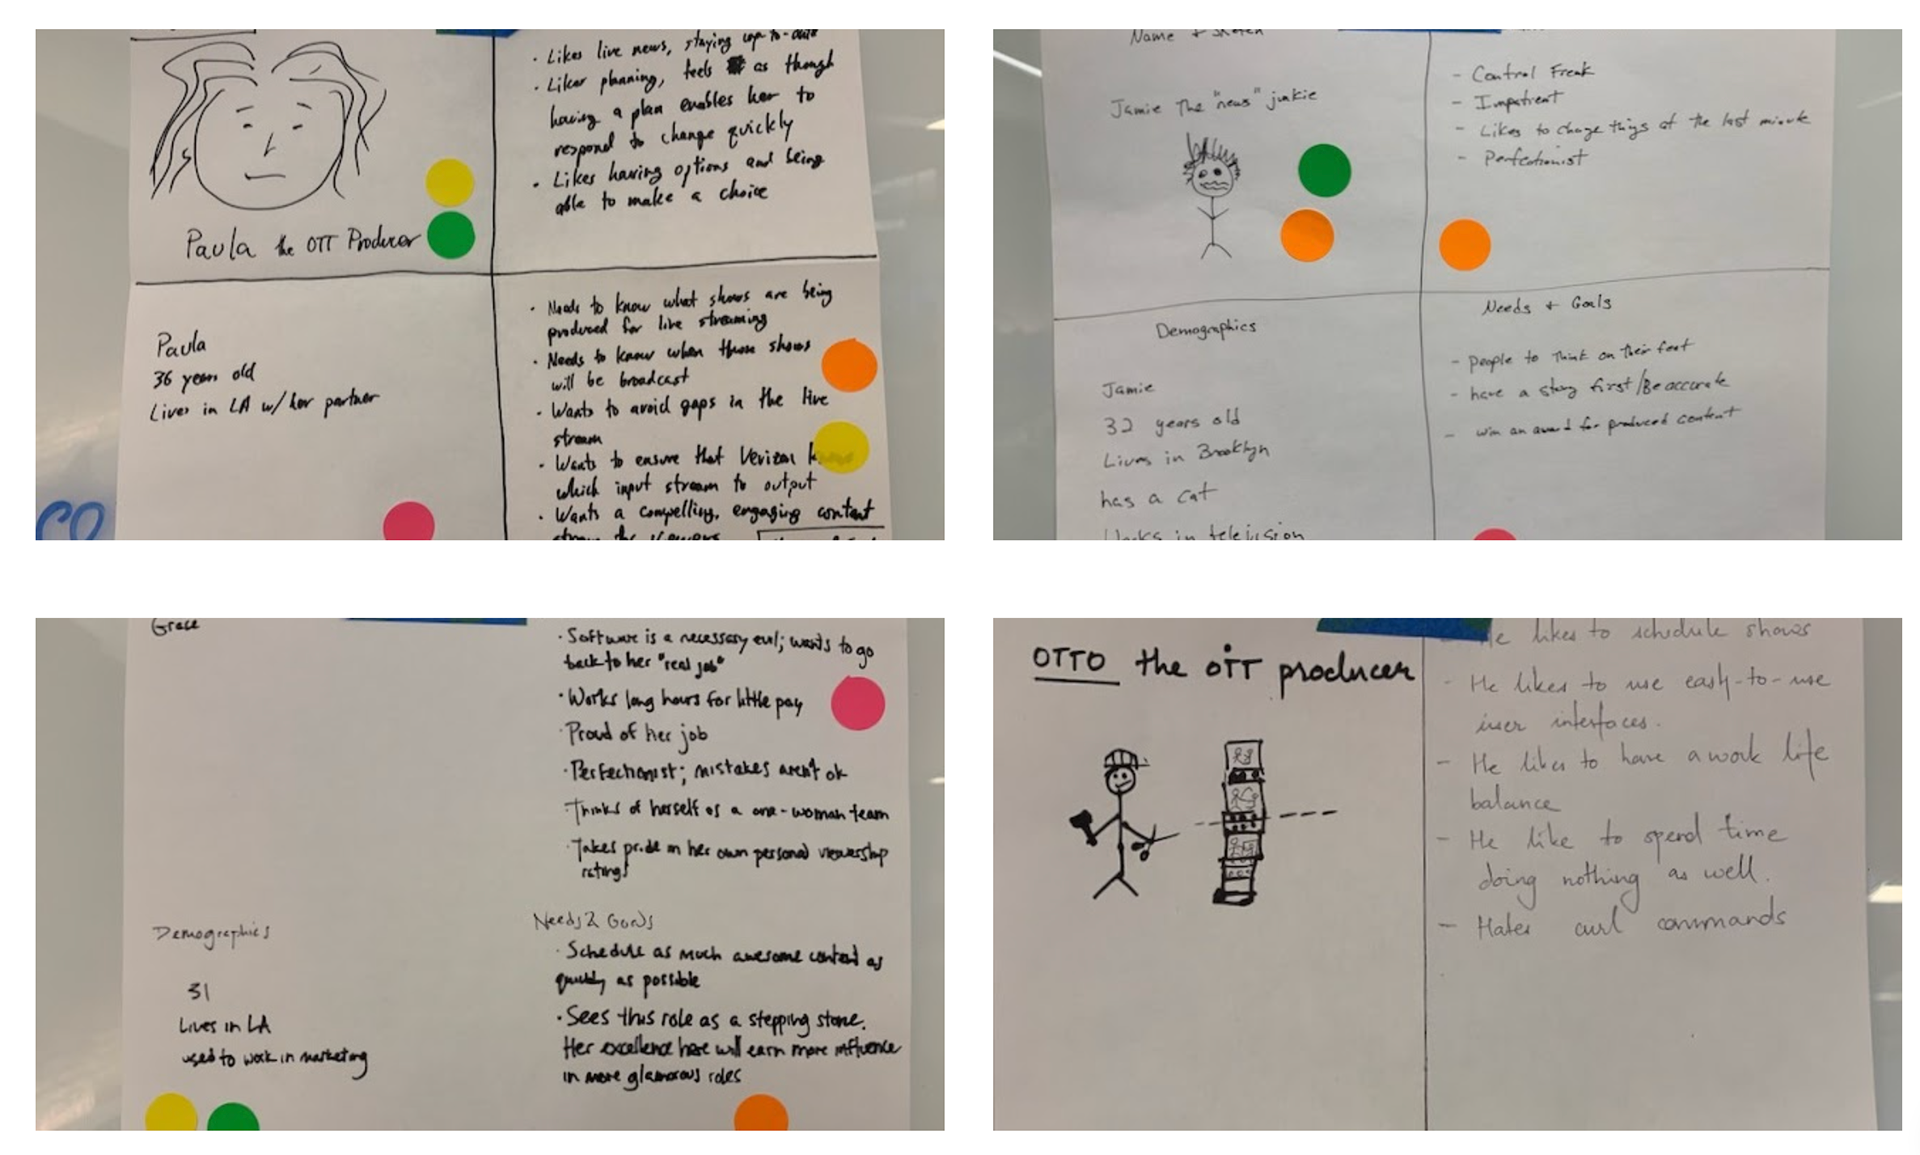 Paula the OTT Producer
· Likes live news, staying up-to-date
· Likes planning, feels as though
having a plan enables her to
respond to change quickly
· Likes having options and being
able to make a choice
Paula
36 years old
Lives in LA w/ her partner
· Needs to know what shows are being
produced for live streaming
· Needs to know when those shows
will be broadcast
· Wants to avoid gaps in the live
stream
· Wants to ensure that Verizon
which input stream to output
· Wants a compelling, engaging content
stream for viewers
CO
Name + Sketch
Jamie The "news" junkie
- Control Freak
- Impatient
- Likes to change things at the last minute
- Perfectionist
Demographics
Jamie
32 years old
Lives in Brooklyn
has a cat
Works in television
Needs + Goals
- people to think on their feet
- have a story first/Be accurate
- win an award for produced content
Grace
· Software is a necessary evil; wants to go
back to her "real job"
· Works long hours for little pay
· Proud of her job
· Perfectionist; mistakes aren't ok
· Thinks of herself as a one-woman team
· Takes pride in her own personal viewership
ratings
Demographics
31
Lives in LA
used to work in marketing
Needs & Goals
· Schedule as much awesome content as
quickly as possible
· Sees this role as a stepping stone.
Her excellence here will earn more influence
in more glamorous roles
OTTO the OTT producer
He likes to schedule shows
- He likes to use easy-to-use
user interfaces.
- He likes to have a work life
balance
- He like to spend time
doing nothing as well.
- Hates curl commands